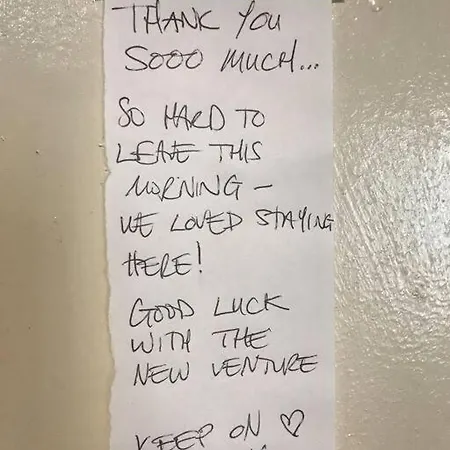 THANK YOU
SOOO MUCH...
SO HARD TO
LEAVE THIS
MORNING -
WE LOVED STAYING
HERE!
GOOD LUCK
WITH THE
NEW VENTURE
KEEP ON ♡